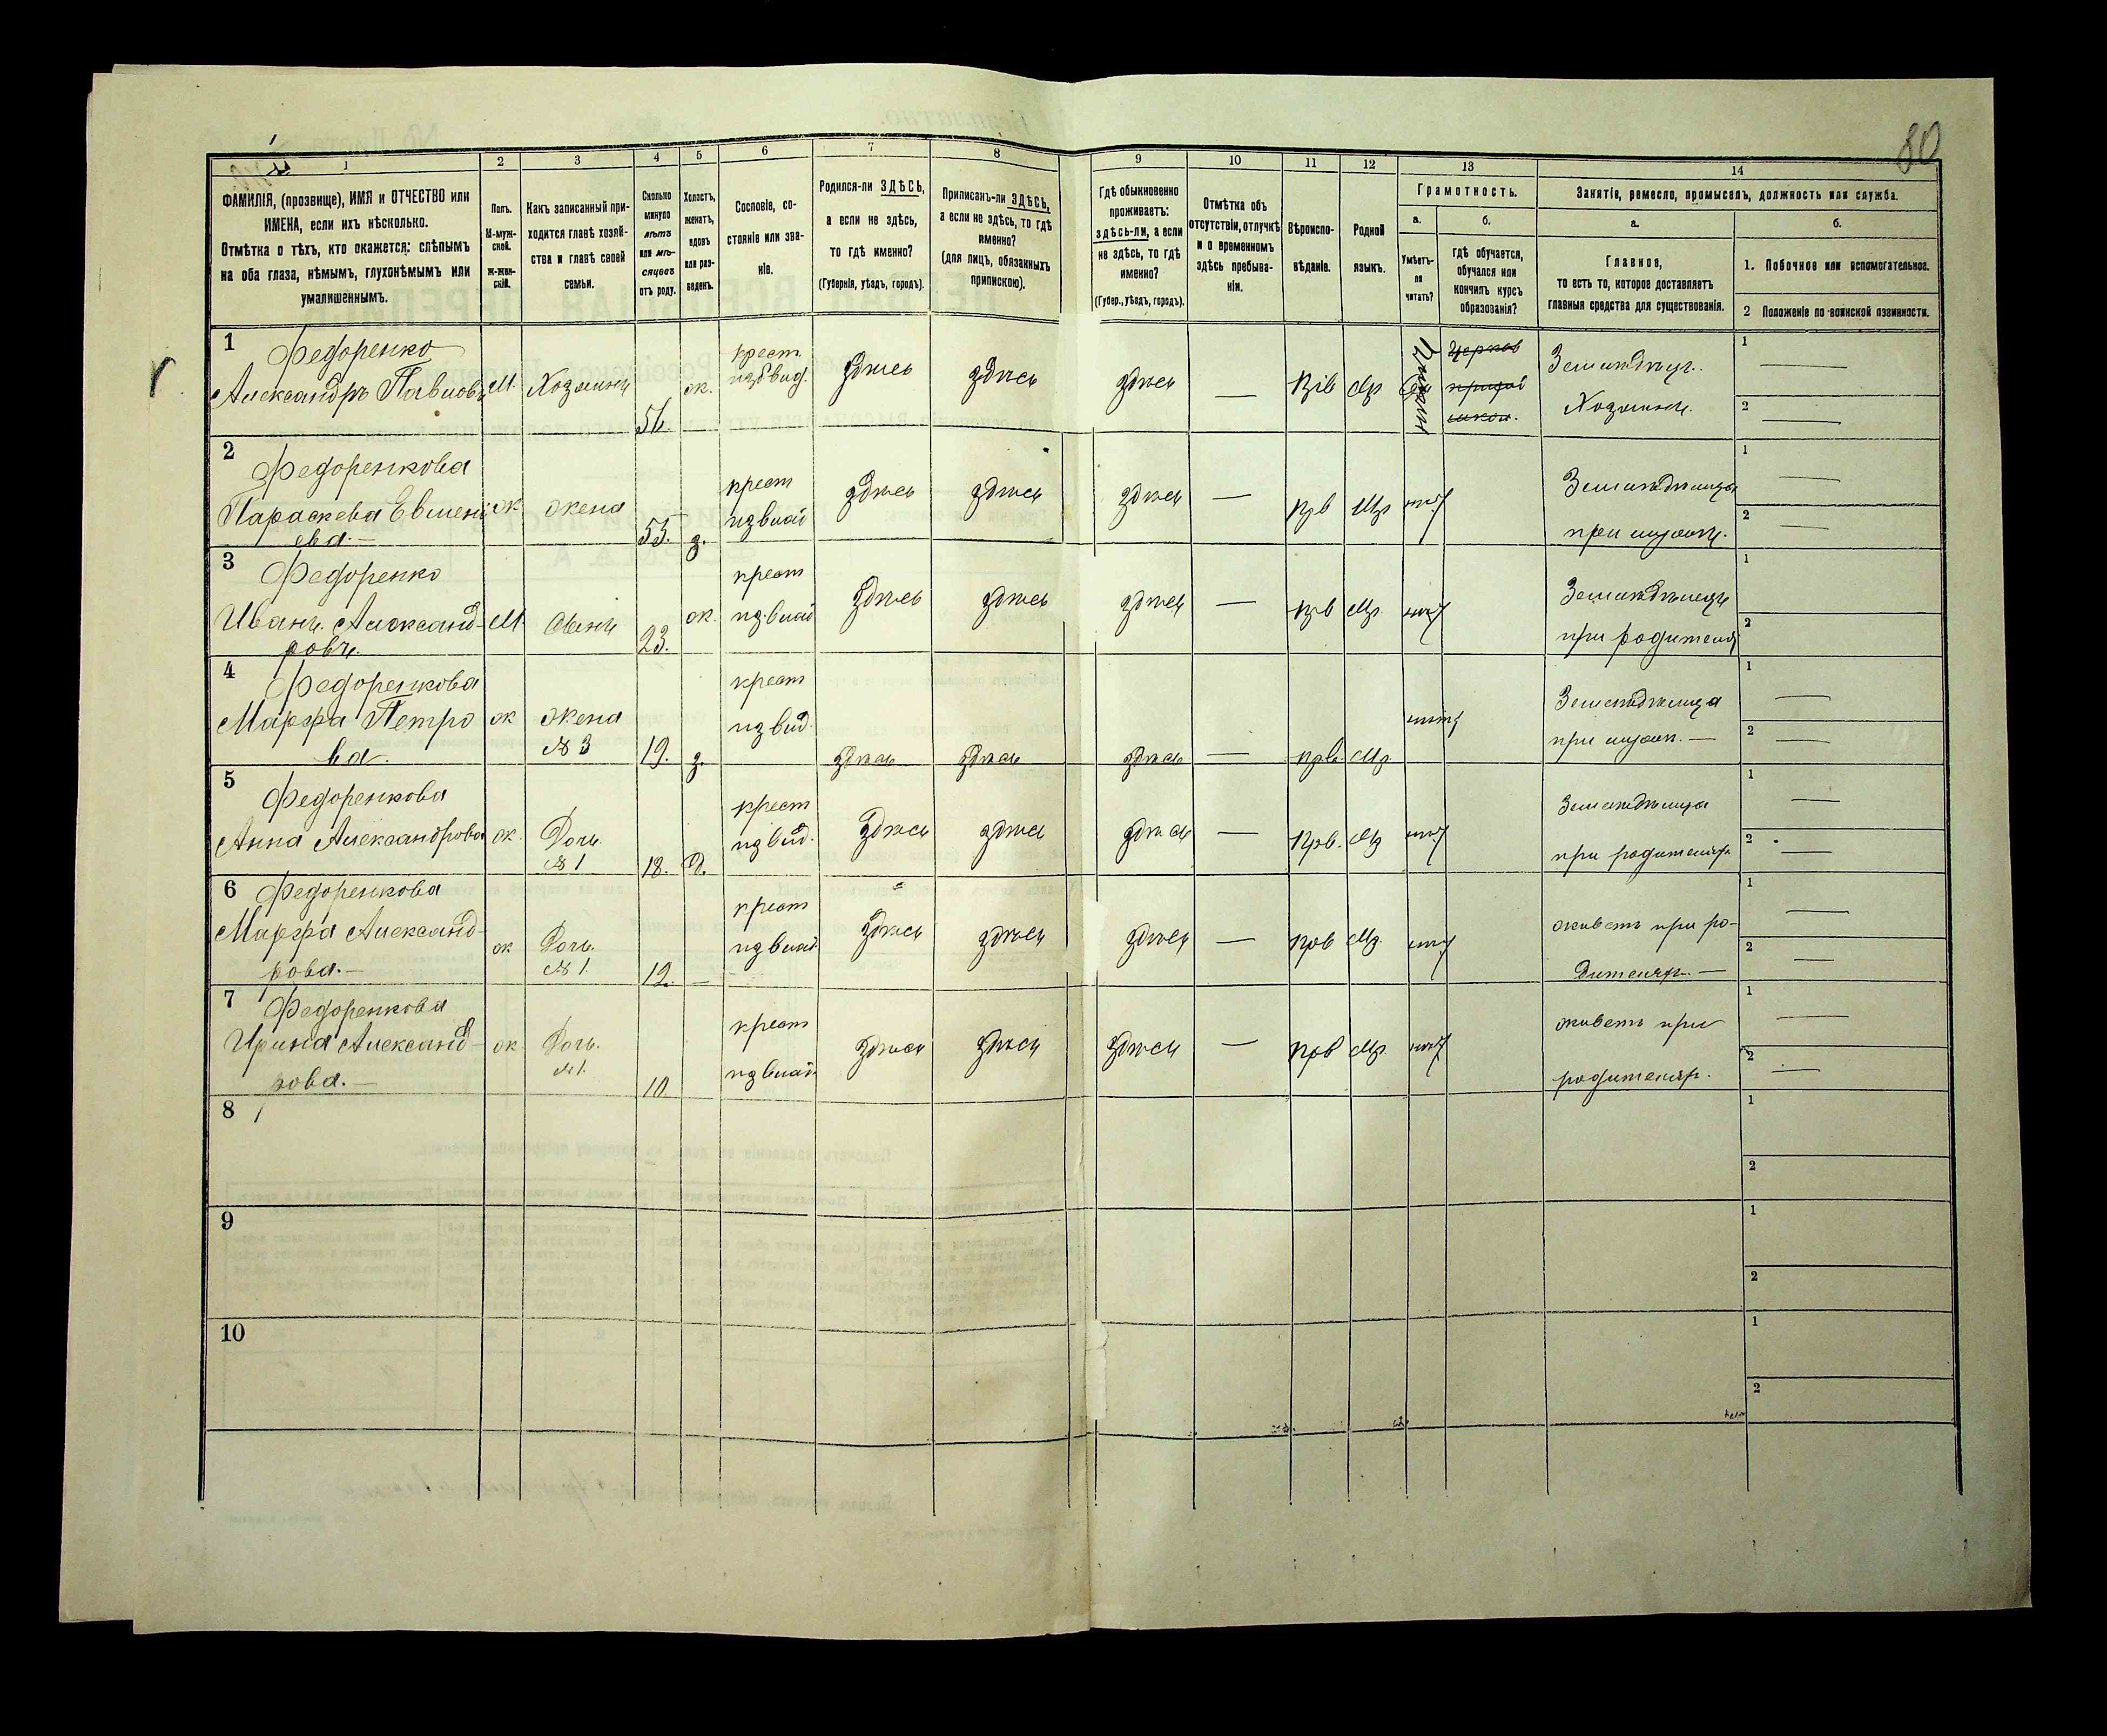 80
1 2 3 4 5 6 7 8 9 10 11 12 13 14
ФАМИЛІЯ, (прозвище), ИМЯ и ОТЧЕСТВО или
ИМЕНА, если ихъ нѣсколько.
Отмѣтка о тѣхъ, кто окажется: слѣпымъ
на оба глаза, нѣмымъ, глухонѣмымъ или
умалишеннымъ.
Полъ.
М-муж-
ской.
ж-жен-
скій.
Какъ записанный при-
ходится главѣ хозяй-
ства и главѣ своей
семьи.
Сколько
минуло
лѣтъ
или мѣ-
сяцевъ
отъ роду.
Холостъ,
женатъ,
вдовъ
или раз-
веденъ.
Сословіе, со-
стояніе или зва-
ніе.
Родился-ли ЗДѢСЬ,
а если не здѣсь,
то гдѣ именно?
(Губернія, уѣздъ, городъ).
Приписанъ-ли ЗДѢСЬ,
а если не здѣсь, то гдѣ
именно?
(для лицъ, обязанныхъ
припискою).
Гдѣ обыкновенно
проживаетъ:
здѣсь-ли, а если
не здѣсь, то гдѣ
именно?
(Губер., уѣздъ, городъ).
Отмѣтка объ
отсутствіи, отлучкѣ
и о временномъ
здѣсь пребыва-
ніи.
Вѣроиспо-
вѣданіе.
Родной
языкъ.
Грамотность.
а.
Умѣетъ-
ли
читать?
б.
Гдѣ обучается,
обучался или
кончилъ курсъ
образованія?
Занятія, ремесло, промыселъ, должность или служба.
а.
Главное,
то есть то, которое доставляетъ
главныя средства для существованія.
б.
1. Побочное или вспомогательное.
2 Положеніе по воинской повинности.
1
Федоренко
Александръ Павловъ М. Хозяинъ ж. крест. здѣсь здѣсь здѣсь — Мр Земледѣлец.
Хозяинъ.
1 —
2 —
2
Федоренкова
Параскева Евмень ж жена 55. з. крест здѣсь здѣсь здѣсь — прв Мр нѣт Земледѣлица
ева.— при мужѣ.
1 —
2 —
3
Федоренко
Иванъ Александ- М. Сынъ 23. ж. крест здѣсь здѣсь здѣсь — прв Мр. нѣт Земледѣлецъ
ровъ. при родителя
1
2
4
Федоренкова
Марфа Петро ж жена крест нѣт Земледѣлица
ва. № 3 19. з. здѣсь здѣсь здѣсь — прв. Мр при мужѣ. —
1 —
2 —
5
Федоренкова
Анна Александрова ж. Дочь. крест здѣсь здѣсь здѣсь — прв. Мр нѣт Земледѣлица
№ 1 18. д. при родителяхъ
1 —
2 —
6 Федоренкова
Марфа Александ- ж Дочь. крест здѣсь здѣсь здѣсь — прв Мр. нѣт живетъ при ро-
рова.— № 1. 12. — дителяхъ. —
1 —
2 —
7
Федоренкова
Ирина Александ- ж. Дочь. крест здѣсь здѣсь здѣсь — прв Мр. нѣт живетъ при
рова.— № 1. 10. родителяхъ.
1 —
2 —
8
1
2
9
1
2
10
1
2